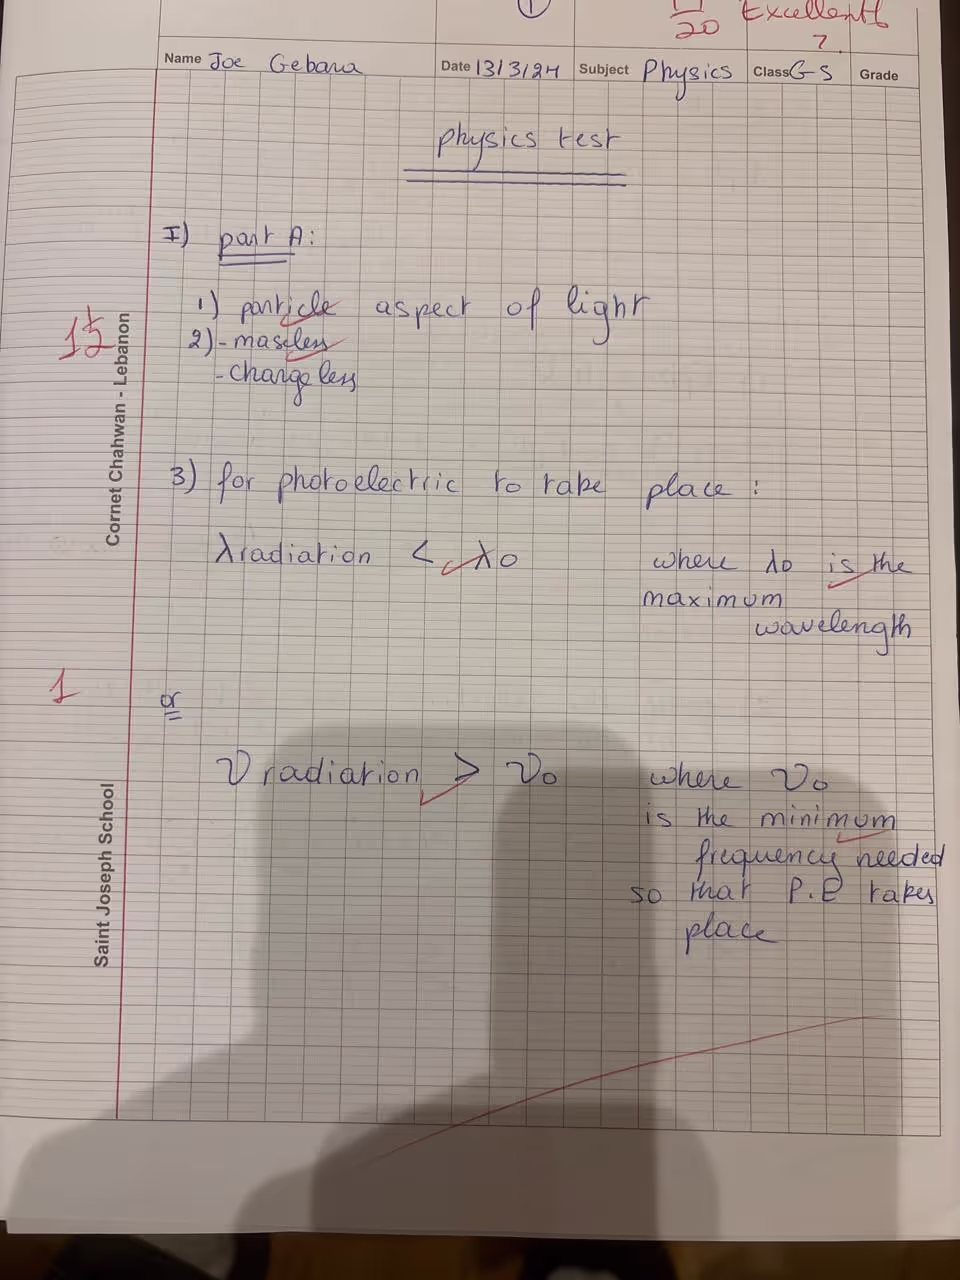 1
20 Excellent!
Name Joe Gebara Date 13/3/24 Subject Physics Class G-S Grade
physics test
I) part A:
1) particle aspect of light
2) - massless
- chargeless
Cornet Chahwan - Lebanon
3) for photoelectric to take place :
λradiation < λ0 where λ0 is the
maximum
wavelength
1
or
ν radiation > ν0 where ν0
is the minimum
frequency needed
so that P.E takes
place
Saint Joseph School